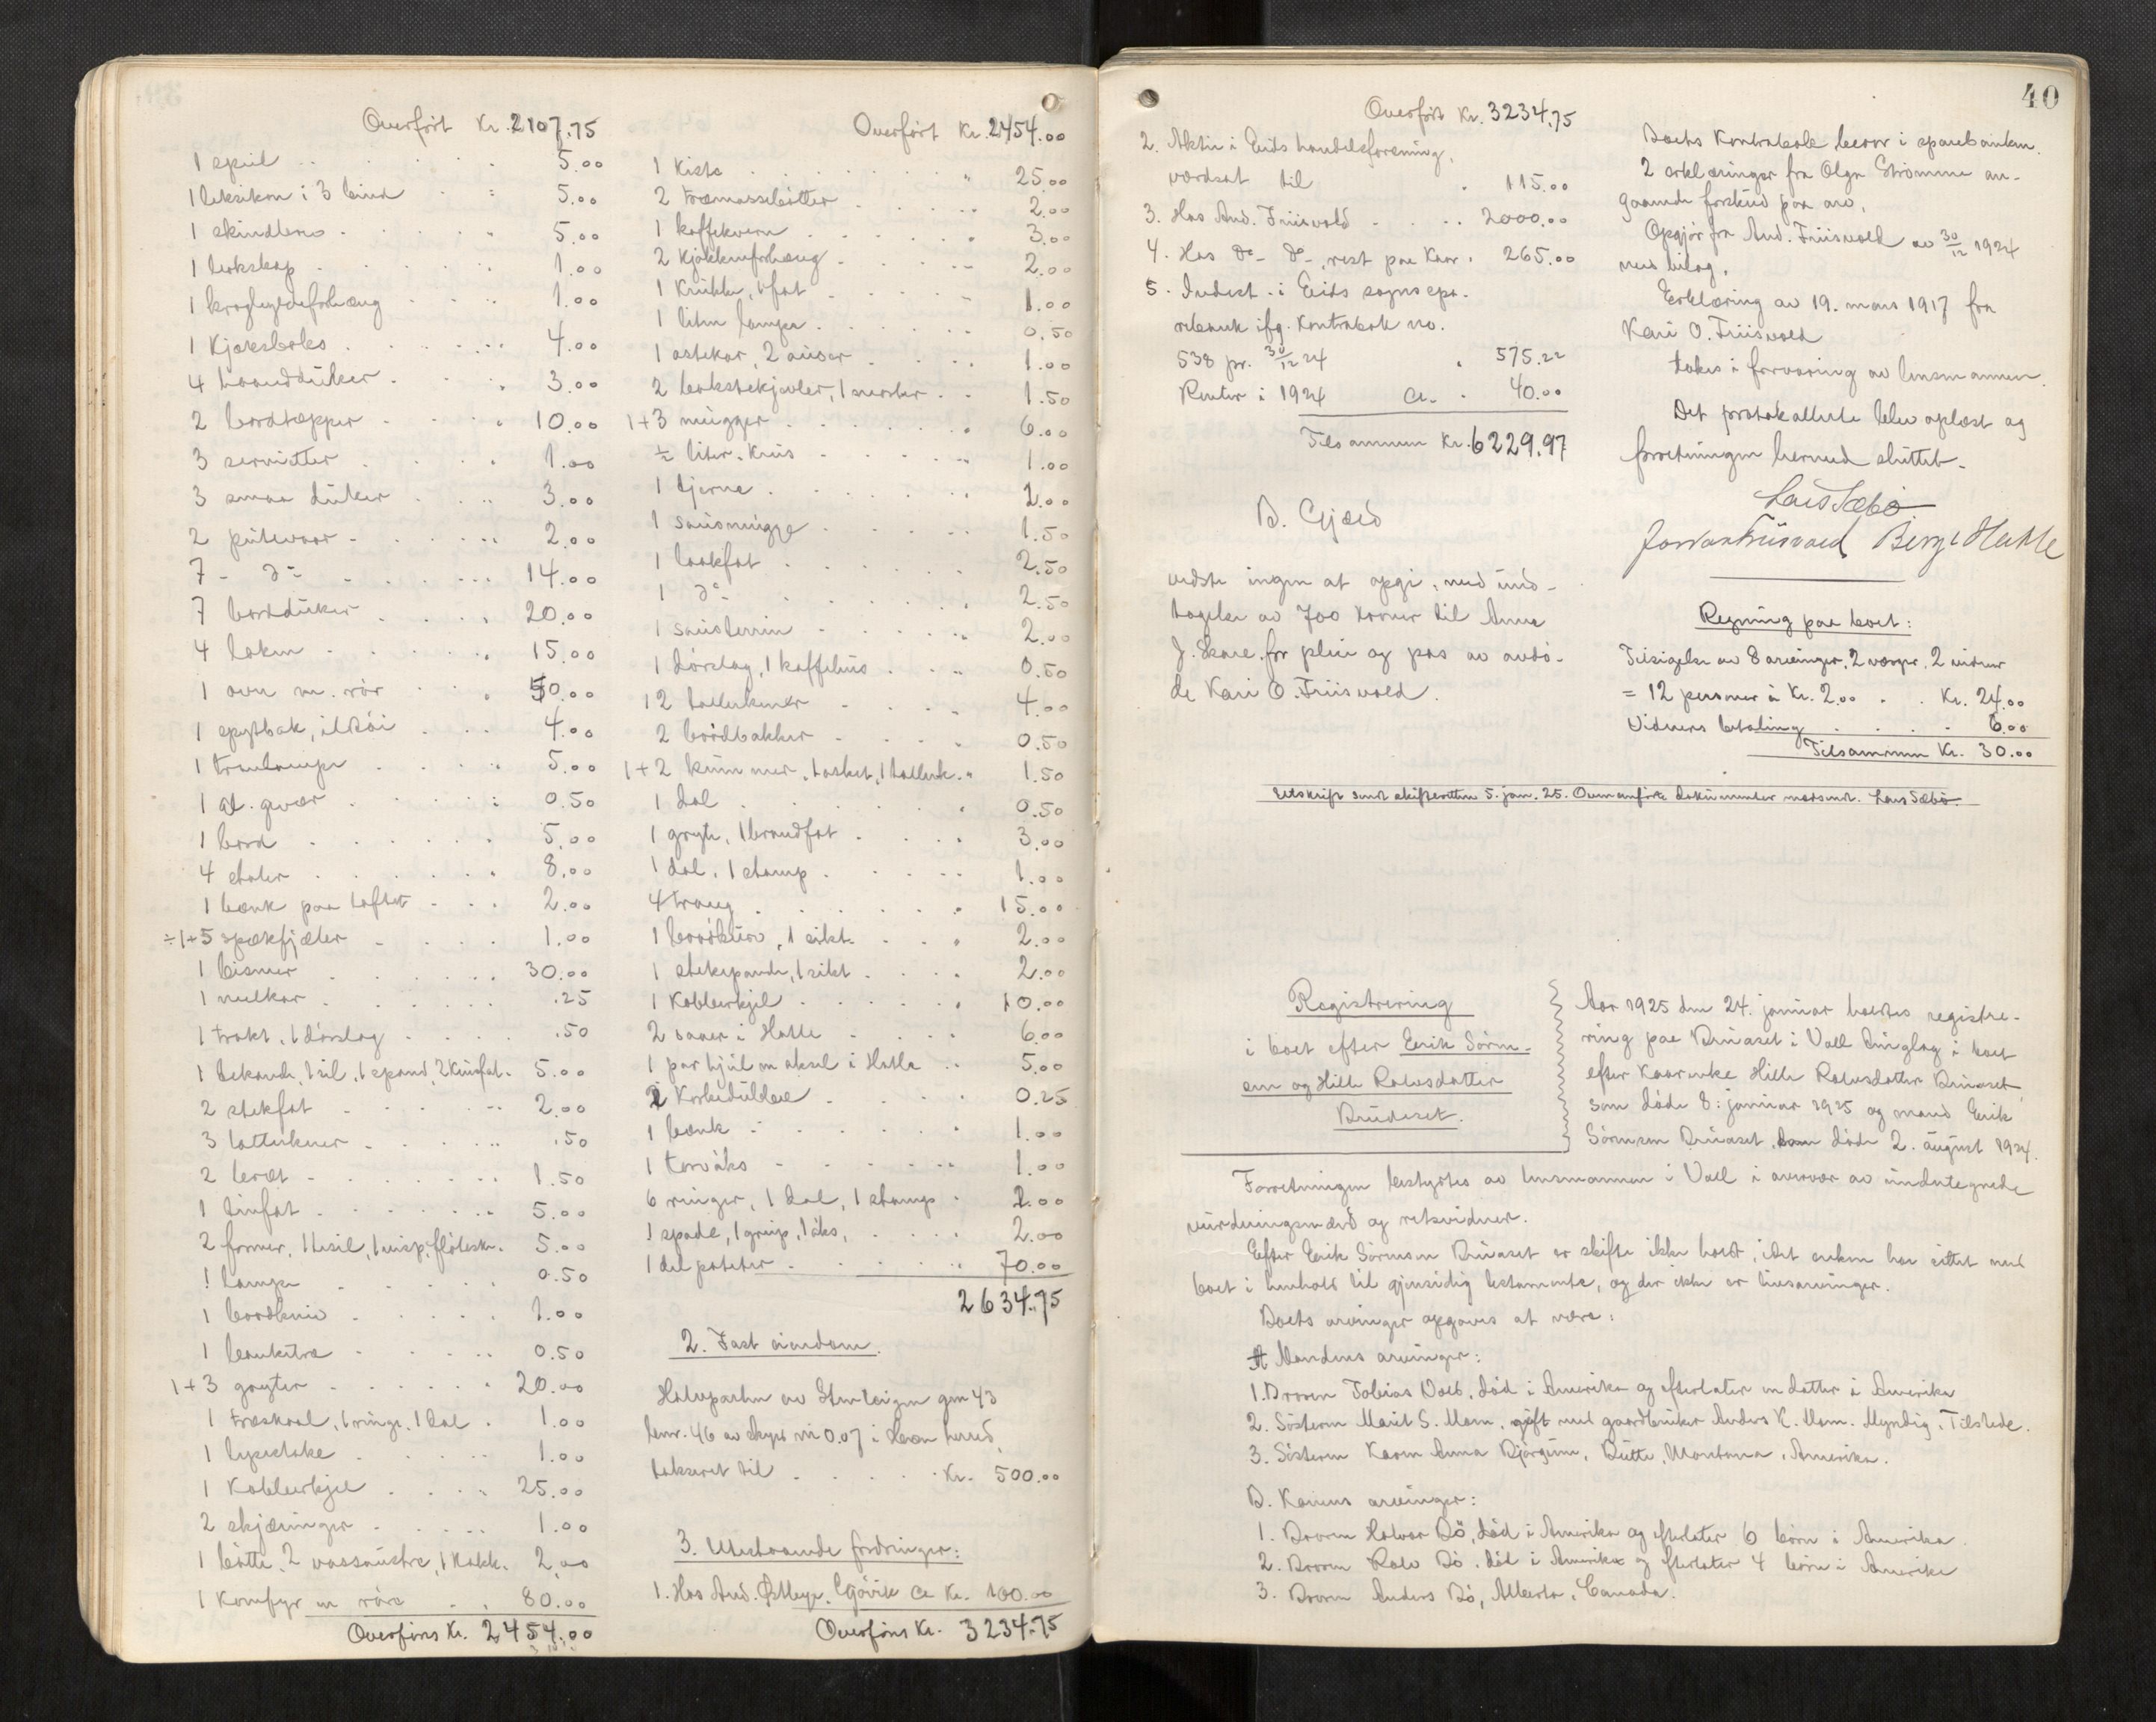 Overført Kr. 2107.75
1 speil 5.00
1 leksikon i 3 bind 5.00
1 skindbros 5.00
1 bokskap 1.00
1 1.00
1 Kjøksboks 4.00
4 haandduker 3.00
2 bordtepper 10.00
3 servietter 1.00
3 smaa duker 3.00
2 putevaar 2.00
7 - do - 14.00
7 bordduker 20.00
4 laken 15.00
1 ovn m. rør 50.00
1 spytbak, 4.00
1 5.00
1 gl. gevær 0.50
1 bord 5.00
4 stoler 8.00
1 bænk paa loftet 2.00
÷1+5 spækfjæler 1.00
1 bismer 30.00
1 melkar .25
1 trakt, 1 dørslag .50
1 1 sil, 1 spand, 2 5.00
2 stekfat 2.00
3 tallerkner .50
2 bræt 1.50
1 5.00
2 former, 1 tesil, 1 visp, 5.00
1 lampe 0.50
1 bordkniv 1.00
1 0.50
1+3 gryter 20.00
1 træskaal, 1 ringe, 1 dal 1.00
1 lysestake 1.00
1 Kobberkjel 25.00
2 skjæringer 1.00
1 bøtte, 2 1 2.00
1 Komfyr m røra 80.00
Overføres Kr. 2454.00
Overført Kr. 2454.00
1 Kiste 25.00
2 træmassebøtter 2.00
1 kaffekvern 3.00
2 Kjøkkenforhæng 2.00
1 Krukke, 1 fat 1.00
1 liten lampe 0.50
1 ostekar, 2 auser 1.00
2 1 1.50
1+3 mugger 6.00
½ liter. Krus 1.00
1 tjerne 2.00
1 sausmugge 1.50
1 laakfat 2.50
1 do - 2.50
1 sausterrin 2.00
1 dørslag, 1 0.50
12 tallerkener 4.00
2 brødbakker 0.50
1+2 kummer, 1 asket, 1 tallerk. 1.50
1 dal 0.50
1 gryte, 1 3.00
1 dal, 1 stamp 1.00
4 traug 15.00
1 brødkurv, 1 sikt 2.00
1 stekepande, 1 sikt 2.00
1 Kobberkjel 10.00
2 i Hatle 6.00
1 par hjul m aksel i Hatle 5.00
2 0.25
1 bænk 1.00
1 1.00
6 ringer, 1 dal, 1 stamp 2.00
1 spade, 1 greip, 1 øks, 2.00
1 del poteter 70.00
2634.75
2. Fast eiendom.
Halvparten av gnr 43
bnr. 46 av skyld m 0.07 i herred,
takseret til Kr. 500.00
3. Utestaaende fordringer:
1. Hos And. Gjøvik ca Kr. 100.00
Overføres Kr. 3234.75
40
Overført Kr. 3234.75
2. Aktie i Eids handelsforening,
værdsat til 115.00
3. Hos And. Friisvold 2000.00
4. Hos do - do -, rest paa Kaar. 265.00
5. Indest. i Eids sogns spa-
rebank ifg. Kontrabok no.
538 pr. 30/12 24 575.22
Renter i 1924 ca. 40.00
Tilsammen Kr. 6229.97
B. Gjæld
vedste ingen at opgi, med und-
tagelse av 700 kroner til Anna
J. Skare for pleie og pas av avdø-
de Kari O. Friisvold.
Boets Kontrabok beror i sparebanken.
2 erklæringer fra Olga Strømme an-
gaaende forskud paa arv,
Opgjør fra And. Friisvold av 30/12 1924
med bilag,
Erklæring av 19. mars 1917 fra
Kari O. Friisvold
takes i forvaring av lensmannen.
Det protokollerte blev oplæst og
forretningen hermed sluttet.
Lars Sæbø
Friisvold Hatle
Regning paa boet:
Tilsigelse av 8 arvinger, 2 værger, 2 vidner
= 12 personer á Kr. 2.00 Kr. 24.00
Vidners betaling 6.00
Tilsammen Kr. 30.00
Utskrift sendt skifteretten 5. jan. 25. Ovenanførte dokumenter medsendt. Lars Sæbø
Registrering
i boet efter Erik Søren-
sen og Hilde Rolvsdatter
Aar 1925 den 24. januar holdtes registre-
ring paa i Vold tinglag i boet
efter Rolvsdatter
som døde 8. januar 1925 og mand Erik
Sørensen som døde 2. august 1924.
Forretningen bestyrtes av lensmannen i Vold i overvær av undertegnede
vurderingsmænd og retsvidner.
Efter Erik Sørensen er skifte ikke holdt, idet enken har sittet med
boet i henhold til gjensidig testamente, og der ikke er livsarvinger.
Boets arvinger opgaves at være:
A Mandens arvinger:
1. Broren Tobias Vold, død i Amerika og efterlater en datter i Amerika
2. Søsteren Marit S. Moen, gift med gaardbruker Anders K. Moen. Myndig. Tilstede.
3. Søsteren Karen Anna Bjørgum, Butte, Montana, Amerika.
B. Konens arvinger:
1. Broren Halvor Bø, død i Amerika og efterlater 6 børn i Amerika.
2. Broren Rolv Bø, død i Amerika og efterlater 4 børn i Amerika
3. Broren Anders Bø, Alberta, Canada.